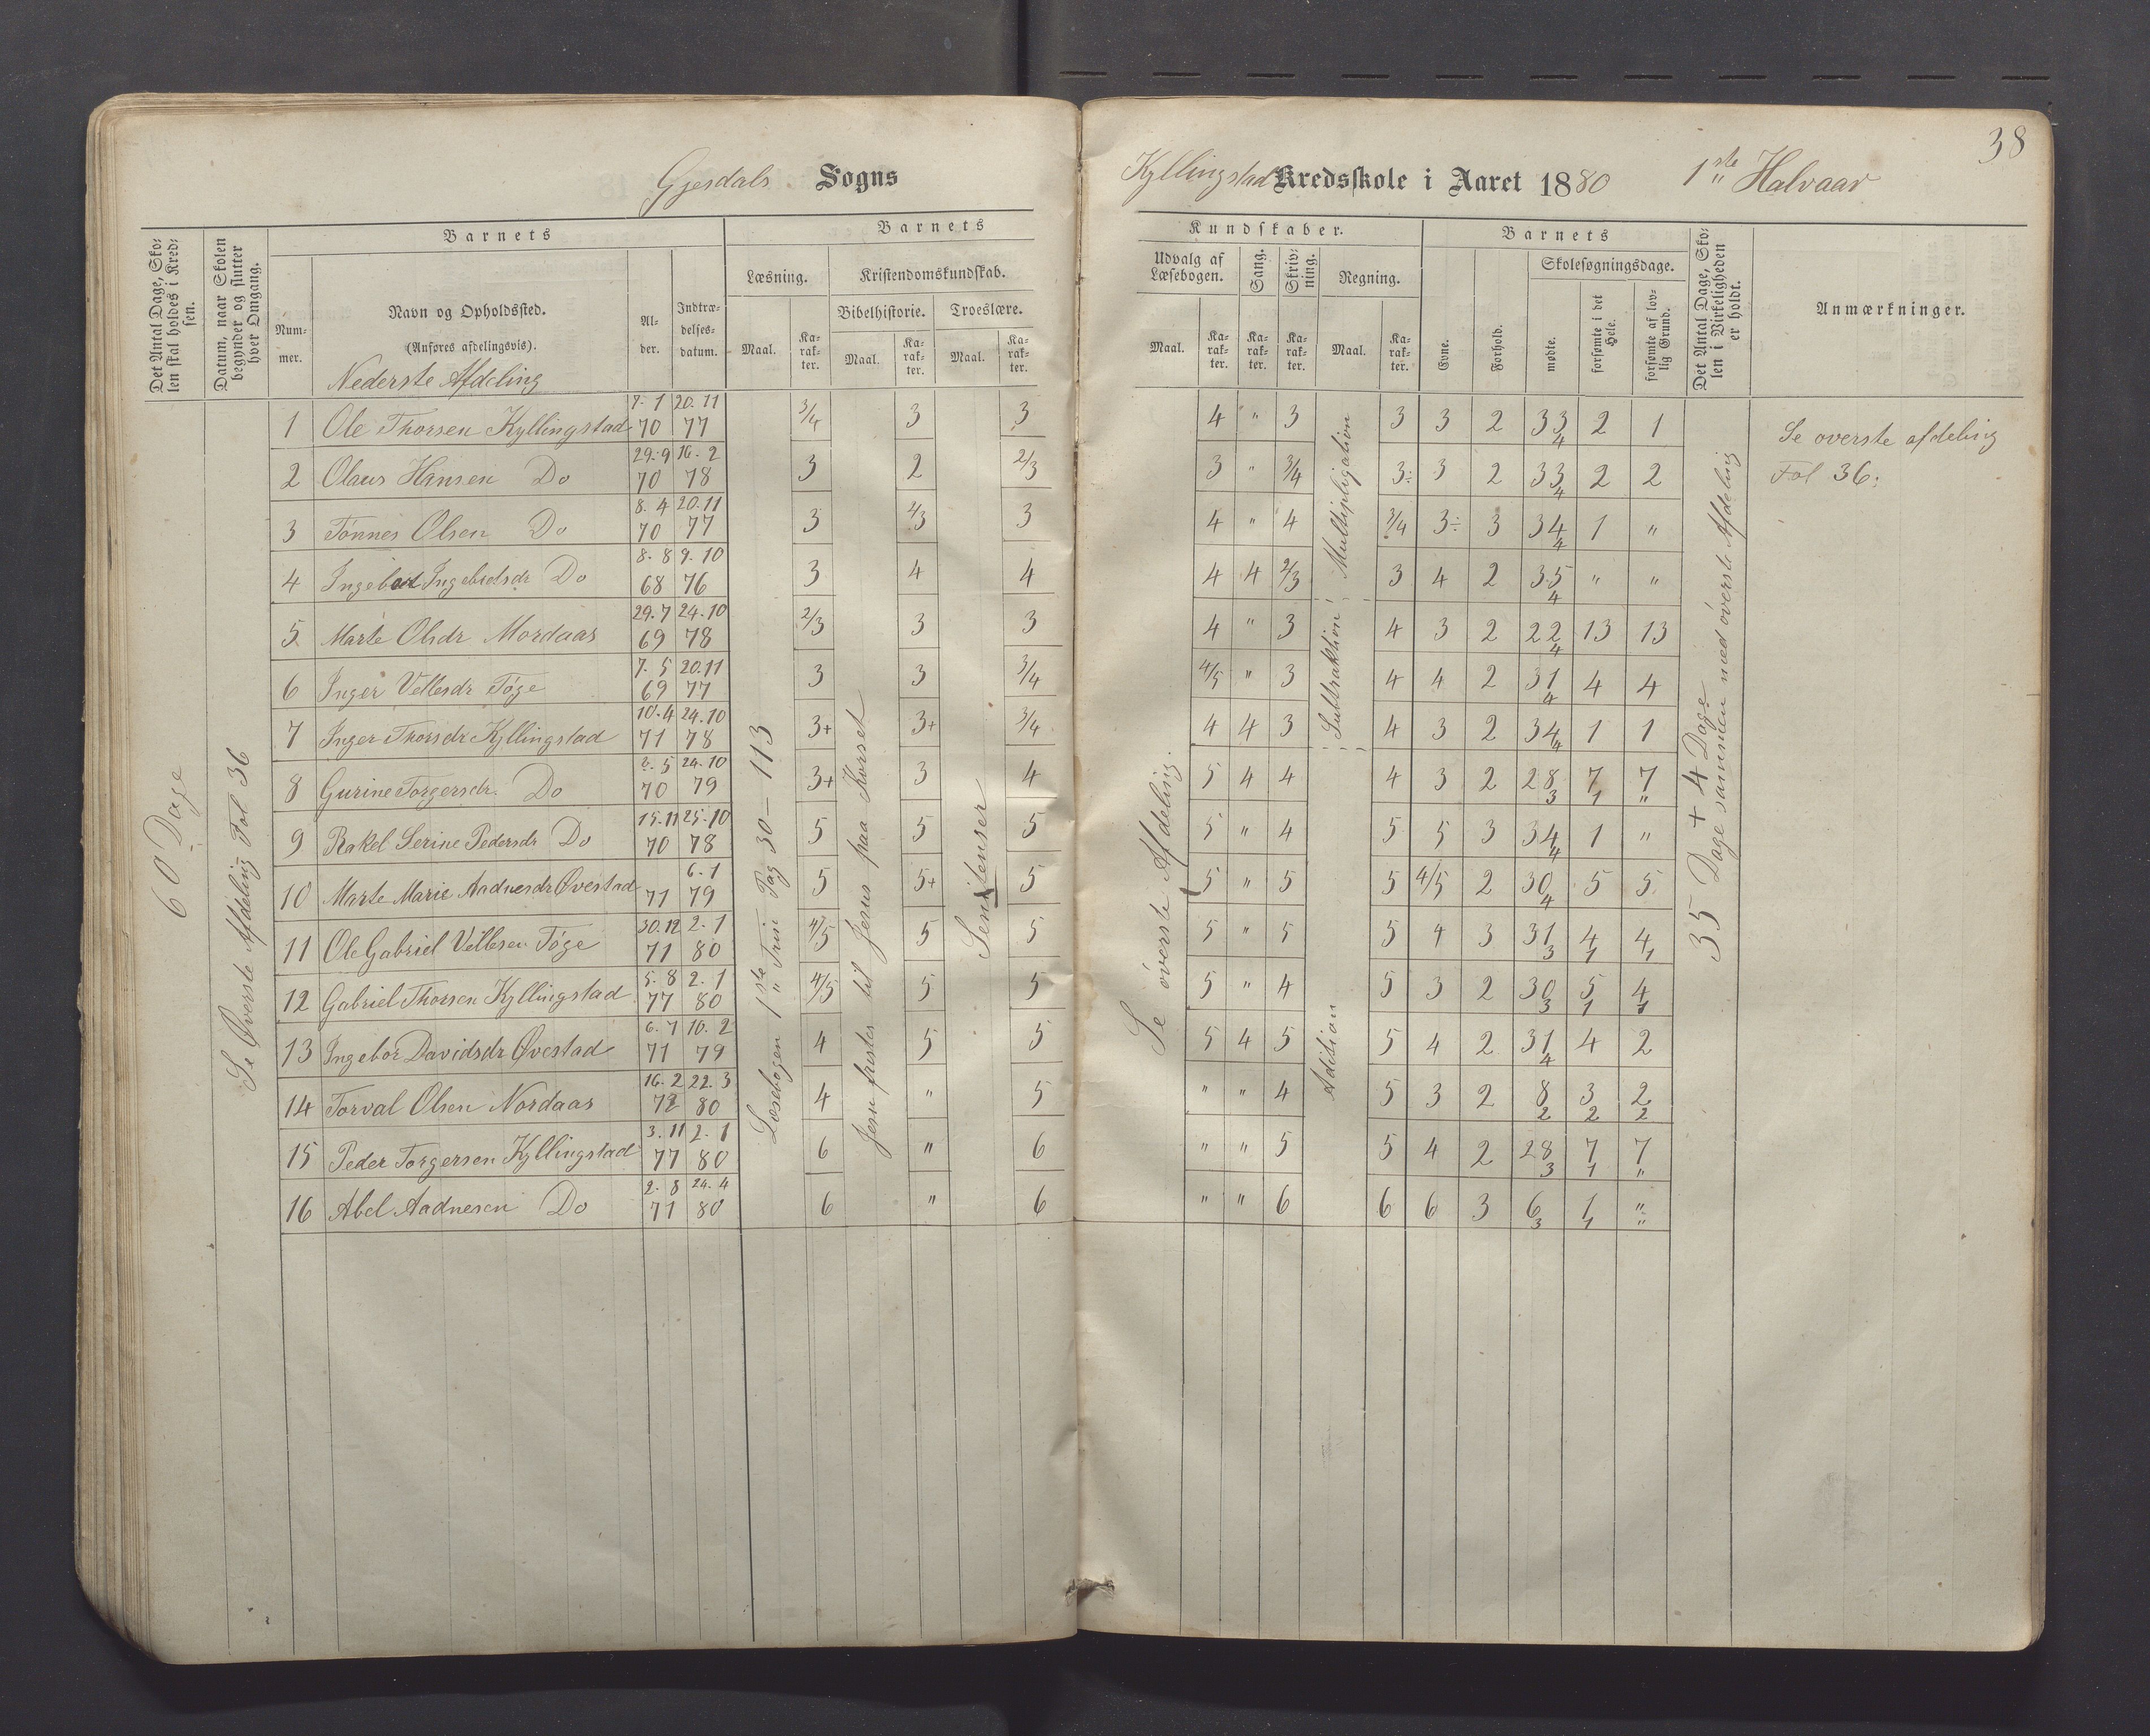 38
Gjesdals Sogns Kyllingstad Kredsskole i Aaret 1880 1ste Halvaar
Det Antal Dage, Sko-
len skal holdes i Kred-
sen.
Datum, naar Skolen
begynder og slutter
hver Omgang.
Barnets
Num-
mer.
Navn og Opholdssted.
(Anføres afdelingsvis).
Nederste Afdeling
Al-
der.
Indtræ-
delses-
datum.
Barnets
Læsning.
Maal.
Ka-
rak-
ter.
Kristendomskundskab.
Bibelhistorie.
Maal.
Ka-
rak-
ter.
Troeslære.
Maal.
Ka-
rak-
ter.
Kundskaber.
Udvalg af
Læsebogen.
Maal.
Ka-
rak-
ter.
Sang.
Ka-
rak-
ter.
Skriv-
ning.
Ka-
rak-
ter.
Regning.
Maal.
Ka-
rak-
ter.
Barnets
Evne.
Forhold.
Skolesøgningsdage.
mødte.
forsømte i det
Hele.
forsømte af lov-
lig Grund.
Det Antal Dage, Sko-
len i Virkeligheden
er holdt.
Anmærkninger.
60 Dage
Se Øverste Afdeling Fol 36
Læsebogen 1ste Trin Pag 30 - 113
Jesu fristes til Jesus paa Korset
Sentenser
Se øverste Afdeling.
Multipligation
Subtraktion
Addition
35 + 4 Dage
Dage sammen med øverste Afdeling
Se øverste afdeling
Fol 36.
1 Ole Thorsen Kyllingstad 7.1 70 20.11 77 3/4 3 3 4 " 3 3 3 2 33 4 2 1
2 Olaus Hansen Do 29.9 70 16.2 78 3 2 2/3 3 " 3/4 3÷ 3 2 33 4 2 2
3 Tønnes Olsen Do 8.4 70 20.11 77 3 2/3 3 4 " 4 3/4 3÷ 3 34 4 1 "
4 Ingebor Ingebretsdr Do 8.8 68 9.10 76 3 4 4 4 4 2/3 3 4 2 35 4 " "
5 Marte Olsdr Mordaas 29.7 69 24.10 78 2/3 3 3 4 " 3 4 3 2 22 4 13 13
6 Inger Vellesdr Tøge 7.5 69 20.11 77 3 3 3/4 4/5 " 3 4 4 2 31 4 4 4
7 Inger Thorsdr Kyllingstad 10.4 71 24.10 78 3+ 3+ 3/4 4 4 3 4 3 2 34 4 1 1
8 Gurine Torgersdr. Do 2.5 70 24.10 79 3+ 3 4 5 4 4 4 3 2 28 3 7 1 7 "
9 Rakel Serine Pedersdr Do 15.11 70 25.10 78 5 5 5 5 " 4 5 5 3 34 4 1 "
10 Marte Marie Aadnesdr Øvestad 71 6.1 79 5 5+ 5 5 " 5 5 4/5 2 30 4 5 5
11 Ole Gabriel Vellesen Tøge 30.12 71 2.1 80 4/5 5 5 5 " 5 5 4 3 31 3 4 1 4 1
12 Gabriel Thorsen Kyllingstad 5.8 77 2.1 80 4/5 5 5 5 " 4 5 3 2 30 3 5 1 4 1
13 Ingebor Davidsdr Øvestad 6.7 71 10.2 79 4 5 5 5 4 5 5 4 2 31 4 4 2
14 Torval Olsen Nordaas 16.2 72 22.3 80 4 " 5 " " 4 5 3 2 8 2 3 2 2 2
15 Peder Torgersen Kyllingstad 3.11 77 2.1 80 6 " 6 " " 5 5 4 2 28 3 7 1 7 "
16 Abel Aadnesen Do 2.8 71 24.4 80 6 " 6 " " 6 6 6 3 6 3 1 1 " "